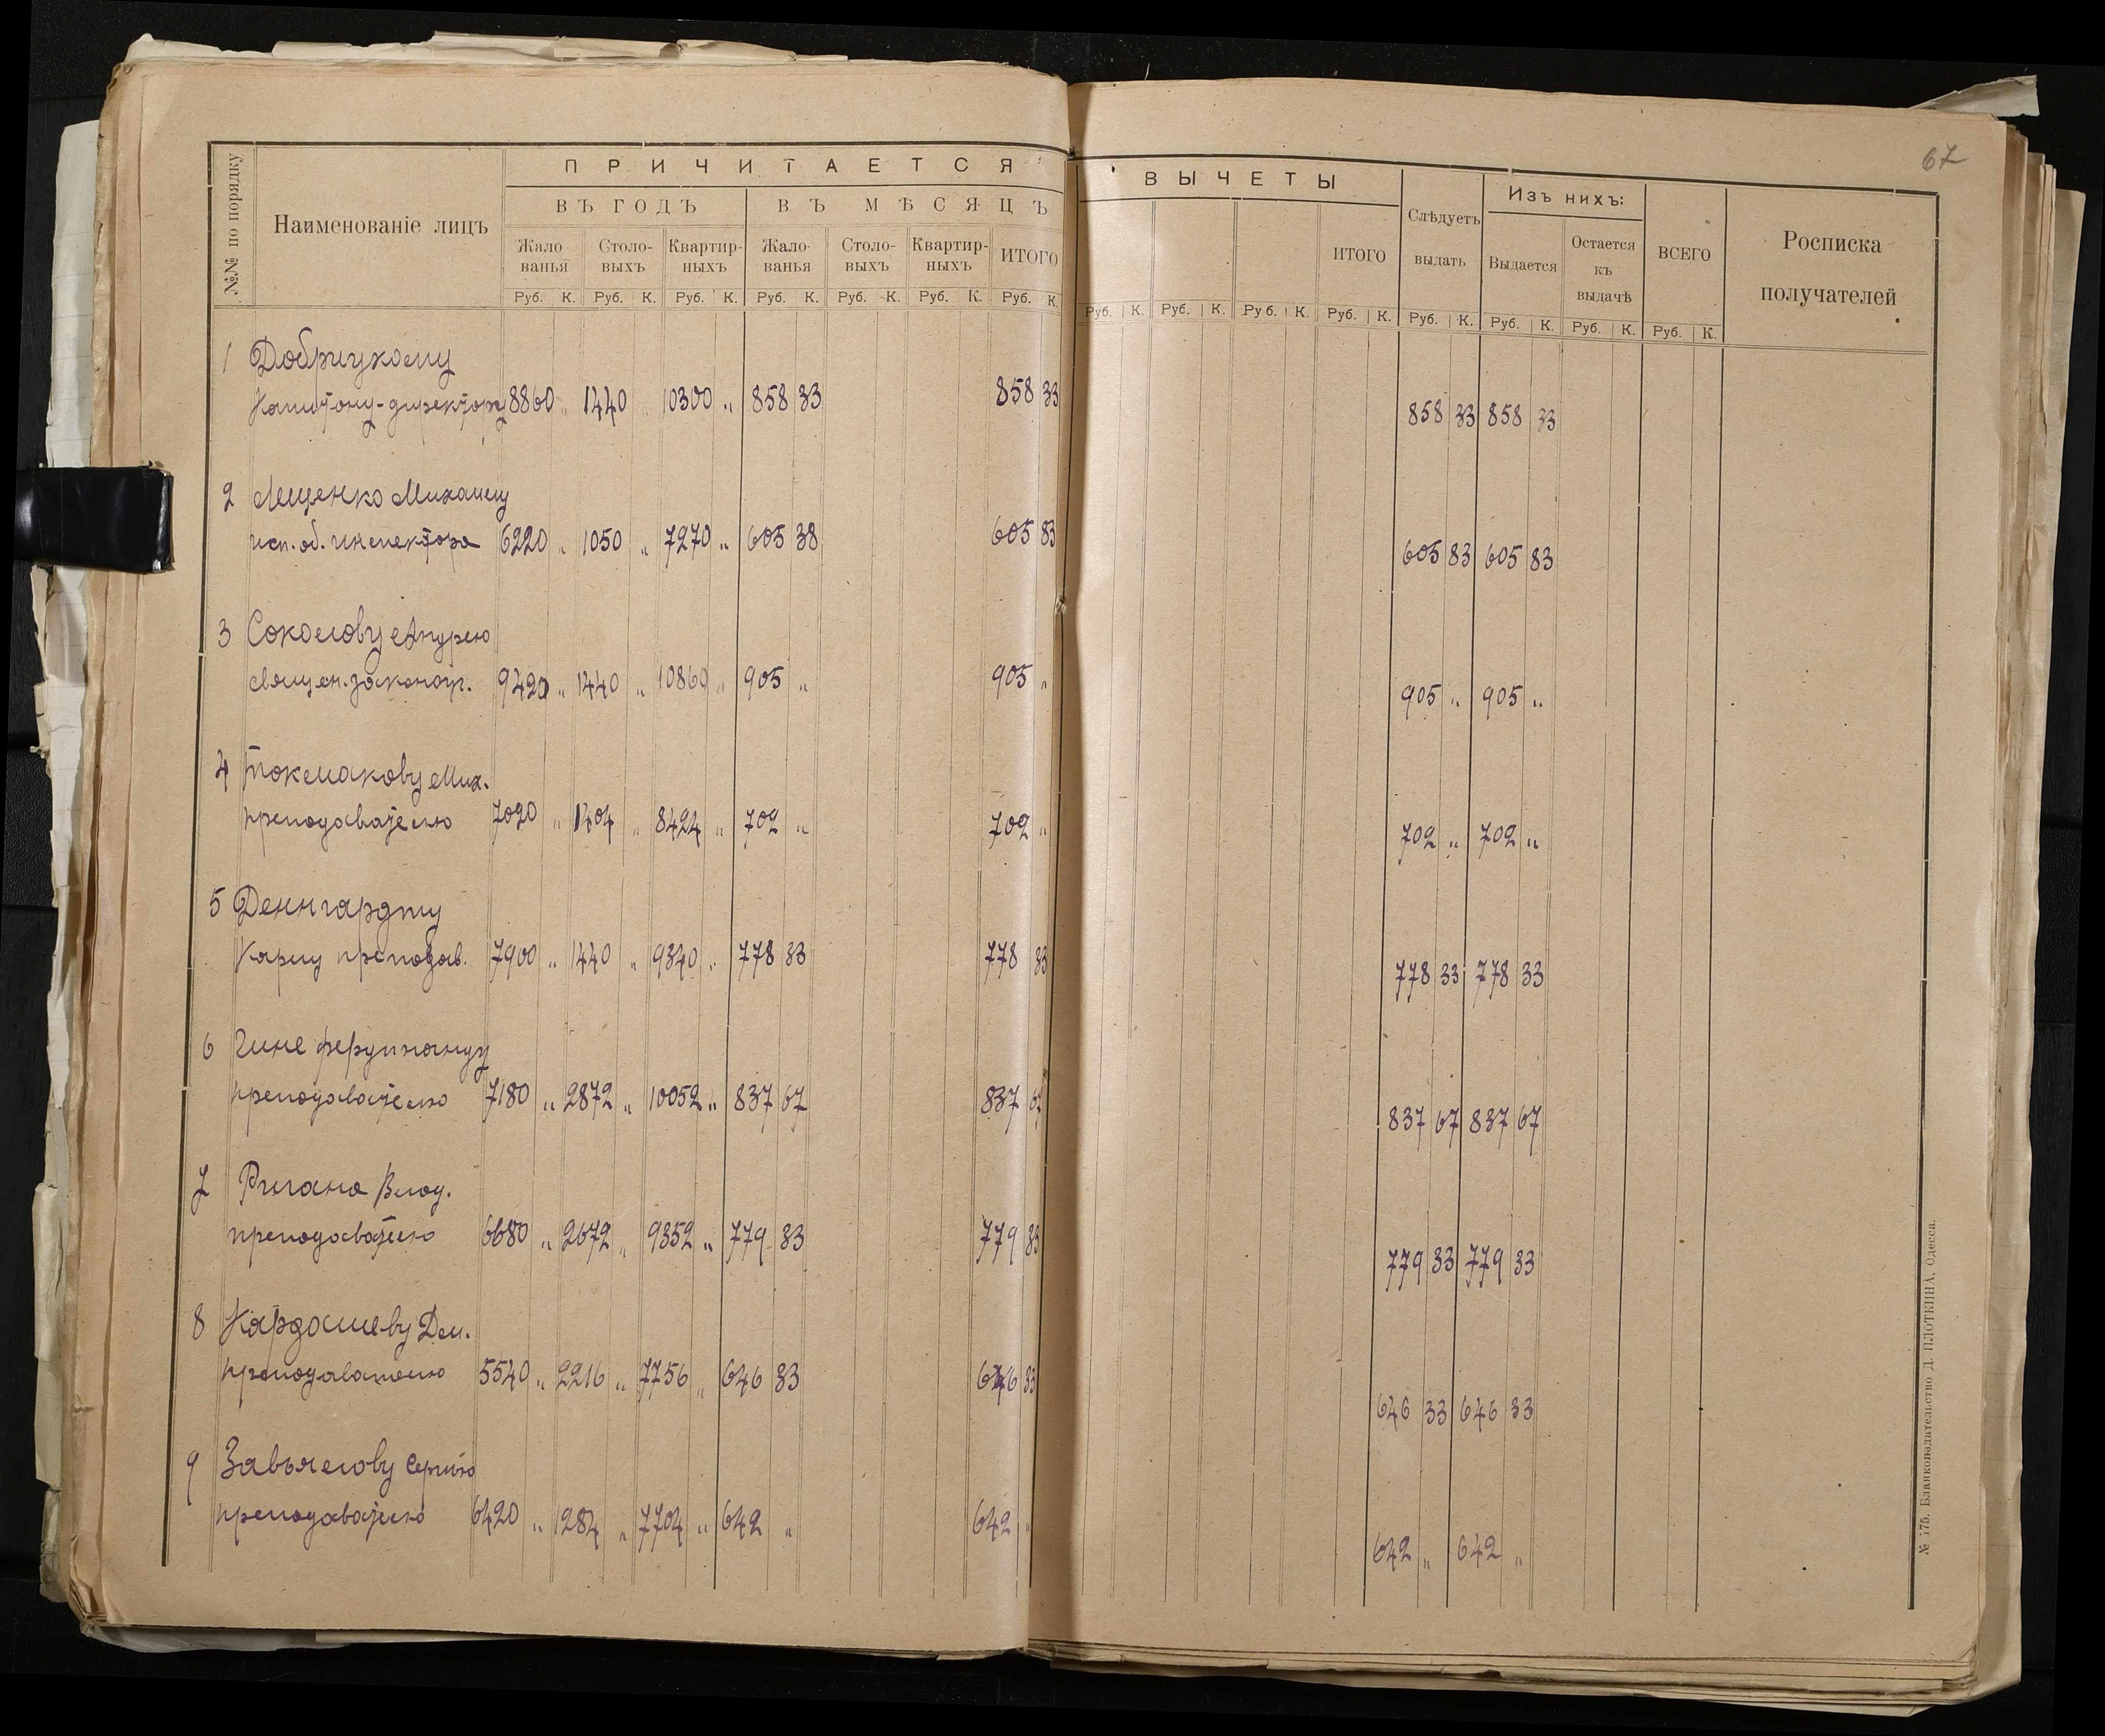 67
№№ по порядку
Наименованіе лицъ
ПРИЧИТАЕТСЯ
ВЪ ГОДЪ
ВЪ МѢСЯЦЪ
Жало-
ванья
Столо-
выхъ
Квартир-
ныхъ
Жало-
ванья
Столо-
выхъ
Квартир-
ныхъ
ИТОГО
Руб. К. Руб. К. Руб. К. Руб. К. Руб. К. Руб. К. Руб. К.
ВЫЧЕТЫ
ИТОГО
Слѣдуетъ
выдать
Изъ нихъ:
Выдается
Остается
къ
выдачѣ
ВСЕГО
Росписка
получателей
Руб. К. Руб. К. Руб. К. Руб. К. Руб. К. Руб. К. Руб. К. Руб. К.
1 Добрицкому
Капитону-директору 8860 „ 1440 „ 10300 „ 858 33 858 33 858 33 858 33
2 Лещенко Михаилу
исп. об. инспектора 6220 „ 1050 „ 7270 „ 605 38 605 83 605 83 605 83
3 Соколову Андрею
священ. законоуч. 9420 „ 1440 „ 10860 „ 905 „ 905 „ 905 „ 905 „
4 Токмакову Мих.
преподавателю 7020 „ 1404 „ 8424 „ 702 „ 702 „ 702 „ 702 „
5 Деннгардту
Карлу преподав. 7900 „ 1440 „ 9340 „ 778 33 778 33 778 33 778 33
6 Гине Фердинанду
преподавателю 7180 „ 2872 „ 10052 „ 837 67 837 67 837 67 837 67
7 Ригана Влад.
преподавателю 6680 „ 2672 „ 9352 „ 779 33 779 33 779 33 779 33
8 Кардашеву Дем.
преподавателю 5540 „ 2216 „ 7756 „ 646 33 646 33 646 33 646 33
9 Завьялову Сергѣю
преподавателю 6420 „ 1284 „ 7704 „ 642 „ 642 „ 642 „ 642 „
№ 175. Бланкоиздательство Д. ПЛОТКИНА, Одесса.